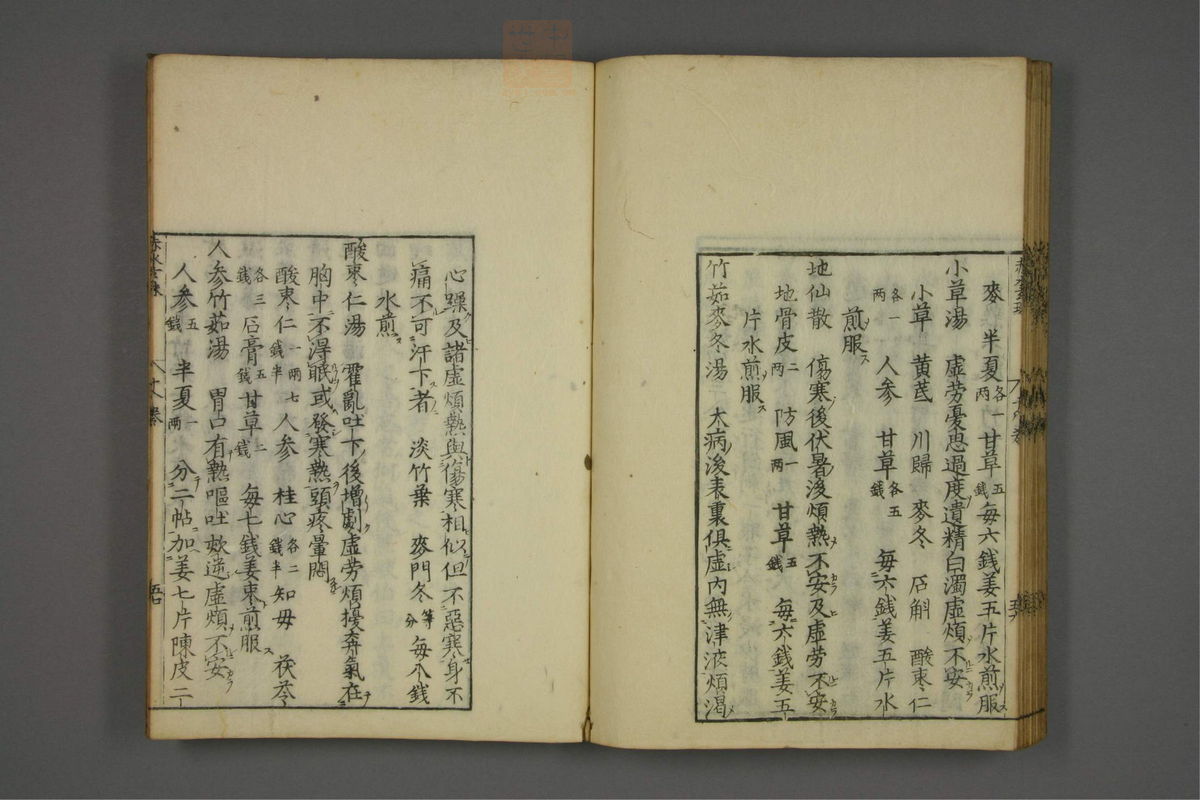 麥　半夏各一兩　甘草五錢　每六錢姜五片水煎服
小草湯　虛勞憂思過度遺精白濁虛煩不安
小草　黃芪　川歸　麥冬　石斛　酸棗仁
各一兩　人參　甘草各五錢　每六錢姜五片水
煎服
地仙散　傷寒後伏暑後煩熱不安及虛勞不安
地骨皮二兩　防風一兩　甘草五錢　每六錢姜五
片水煎服
竹茹麥冬湯　大病後表裏俱虛內無津液煩渴
心躁及諸虛煩熱與傷寒相似但不惡寒身不
痛不可汗下者　淡竹葉　麥門冬等分　每八錢
水煎
酸棗仁湯　霍亂吐下後增劇虛勞煩擾奔氣在
胸中不得眠或發寒熱頭疼暈悶
酸棗仁一兩七錢半　人參　桂心各二錢半　知母　茯苓
各三錢　石膏五錢　甘草二錢　每七錢姜棗煎服
人參竹茹湯　胃口有熱嘔吐欬逆虛煩不安
人參五錢　半夏一兩　分二帖加姜七片陳皮二